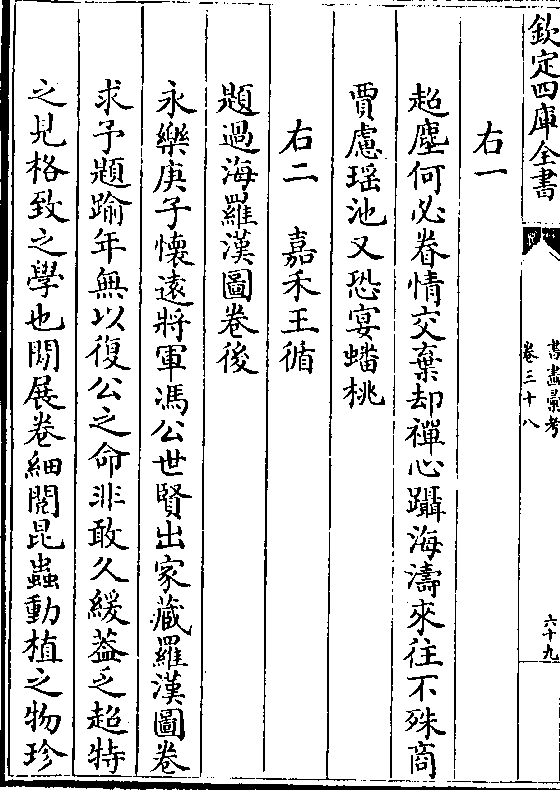 欽定四庫全書
書畫彙考
卷三十八
六十九
右一
超塵何必眷情交棄却禪心躡海濤來往不殊商
賈慮瑶池又恐宴蟠桃
右二　嘉禾王循
題過海羅漢圖卷後
永樂庚子懷遠將軍馮公世賢出家藏羅漢圖卷
求予題踰年無以復公之命非敢久緩葢乏超特
之見格致之學也閒展卷細閱昆蟲動植之物珍